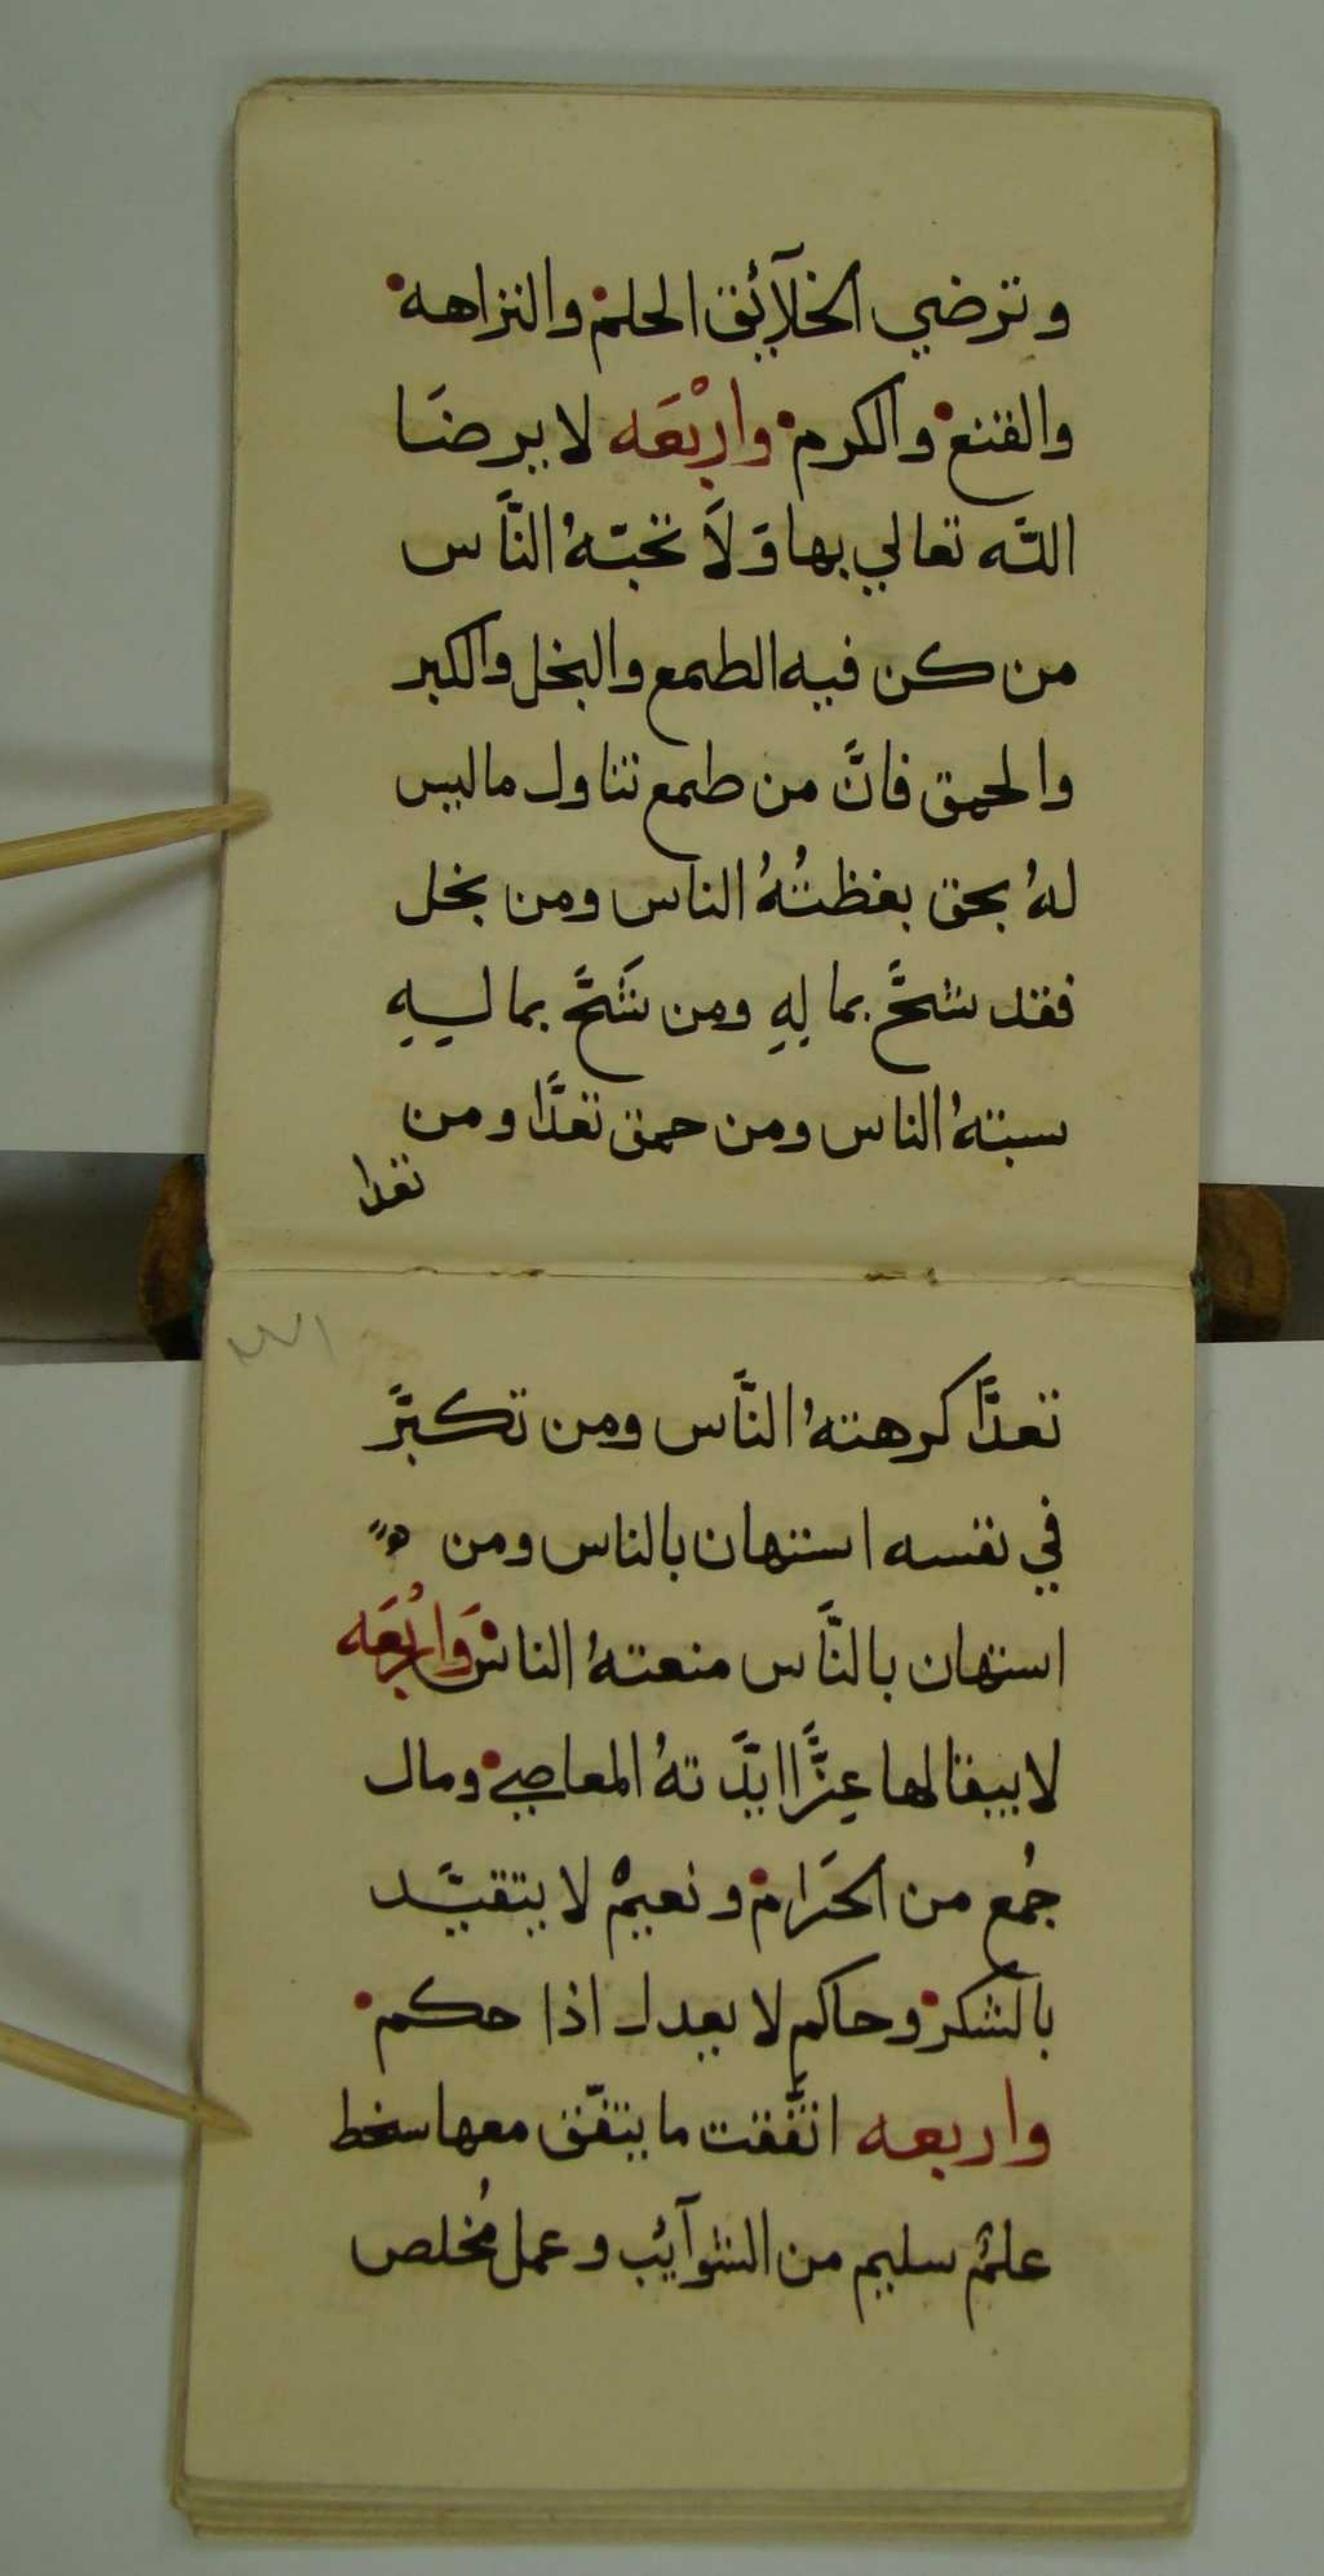 وترضي الخلآئق الحلم والنزاهه
والقنع والكرم واربعَه لا يرضَا
اللّه تعالي بها وَلَا تحبّهُ النَّاس
من كن فيه الطمع والبخل والكبر
والحمق فانَّ من طمع تناول ماليس
لهُ بحق بغظتُهُ الناس ومن بخل
فقد شحَّ بما لِهِ ومن شَحَّ بما ليهِ
سبتهُ الناس ومن حمق تعدَّا ومن
تعدا
تعدَّا كرهتهُ النَّاس ومن تكبَّر
في نفسه استهان بالناس ومن
استهان بالنَّاس منعتهُ الناس وَاربُعَه
لا يبقا لها عِزًّا ايَّدتهُ المعاصي ومال
جُمع من الحَرام ونعيمْ لا يتقيَّد
بالشكر وحاكم لا يعدل اذا حكم
واربعه اتَّفقت ما يتّفق معها سخط
علمٌ سليم من الشوآئب وعمل مُخلص